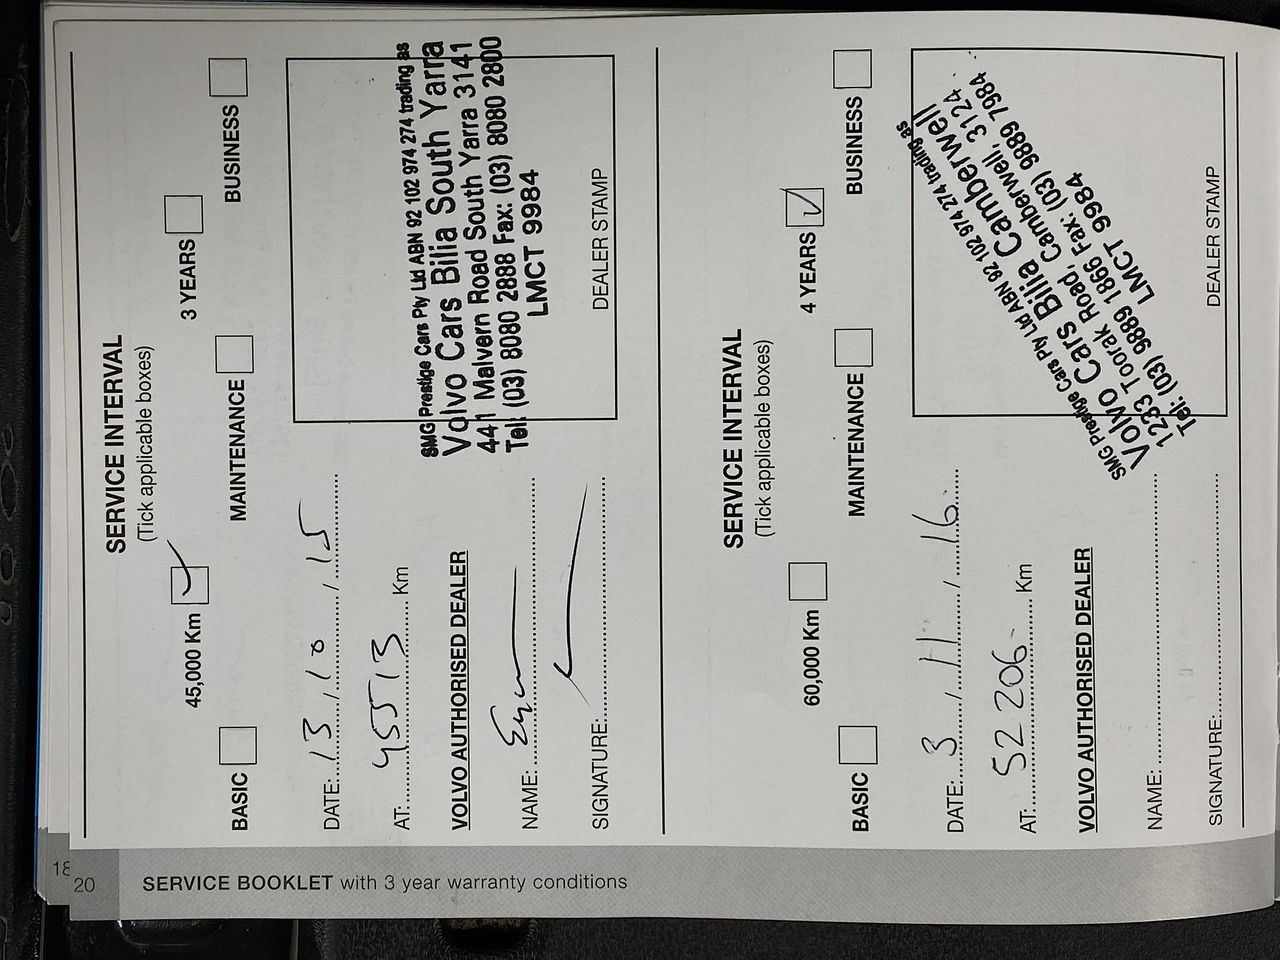 SERVICE INTERVAL
(Tick applicable boxes)
45,000 Km 3 YEARS
BASIC MAINTENANCE BUSINESS
DATE: 13, 10, 15
AT: 45513 Km
VOLVO AUTHORISED DEALER
NAME:
SIGNATURE:
SMG Prestige Cars Pty Ltd ABN 92 102 974 274 trading as
Volvo Cars Bilia South Yarra
441 Malvern Road South Yarra 3141
Tel: (03) 8080 2888 Fax: (03) 8080 2800
LMCT 9984
DEALER STAMP
SERVICE INTERVAL
(Tick applicable boxes)
60,000 Km 4 YEARS
BASIC MAINTENANCE BUSINESS
DATE: 3, 11, 16.
AT: 52 206 Km
VOLVO AUTHORISED DEALER
NAME:
SIGNATURE:
SMG Prestige Cars Pty Ltd ABN 92 102 974 274 trading as
Volvo Cars Bilia Camberwell
1233 Toorak Road, Camberwell, 3124
Tel: (03) 9889 1866 Fax: (03) 9889 7984
LMCT 9984
DEALER STAMP
18
20
SERVICE BOOKLET with 3 year warranty conditions